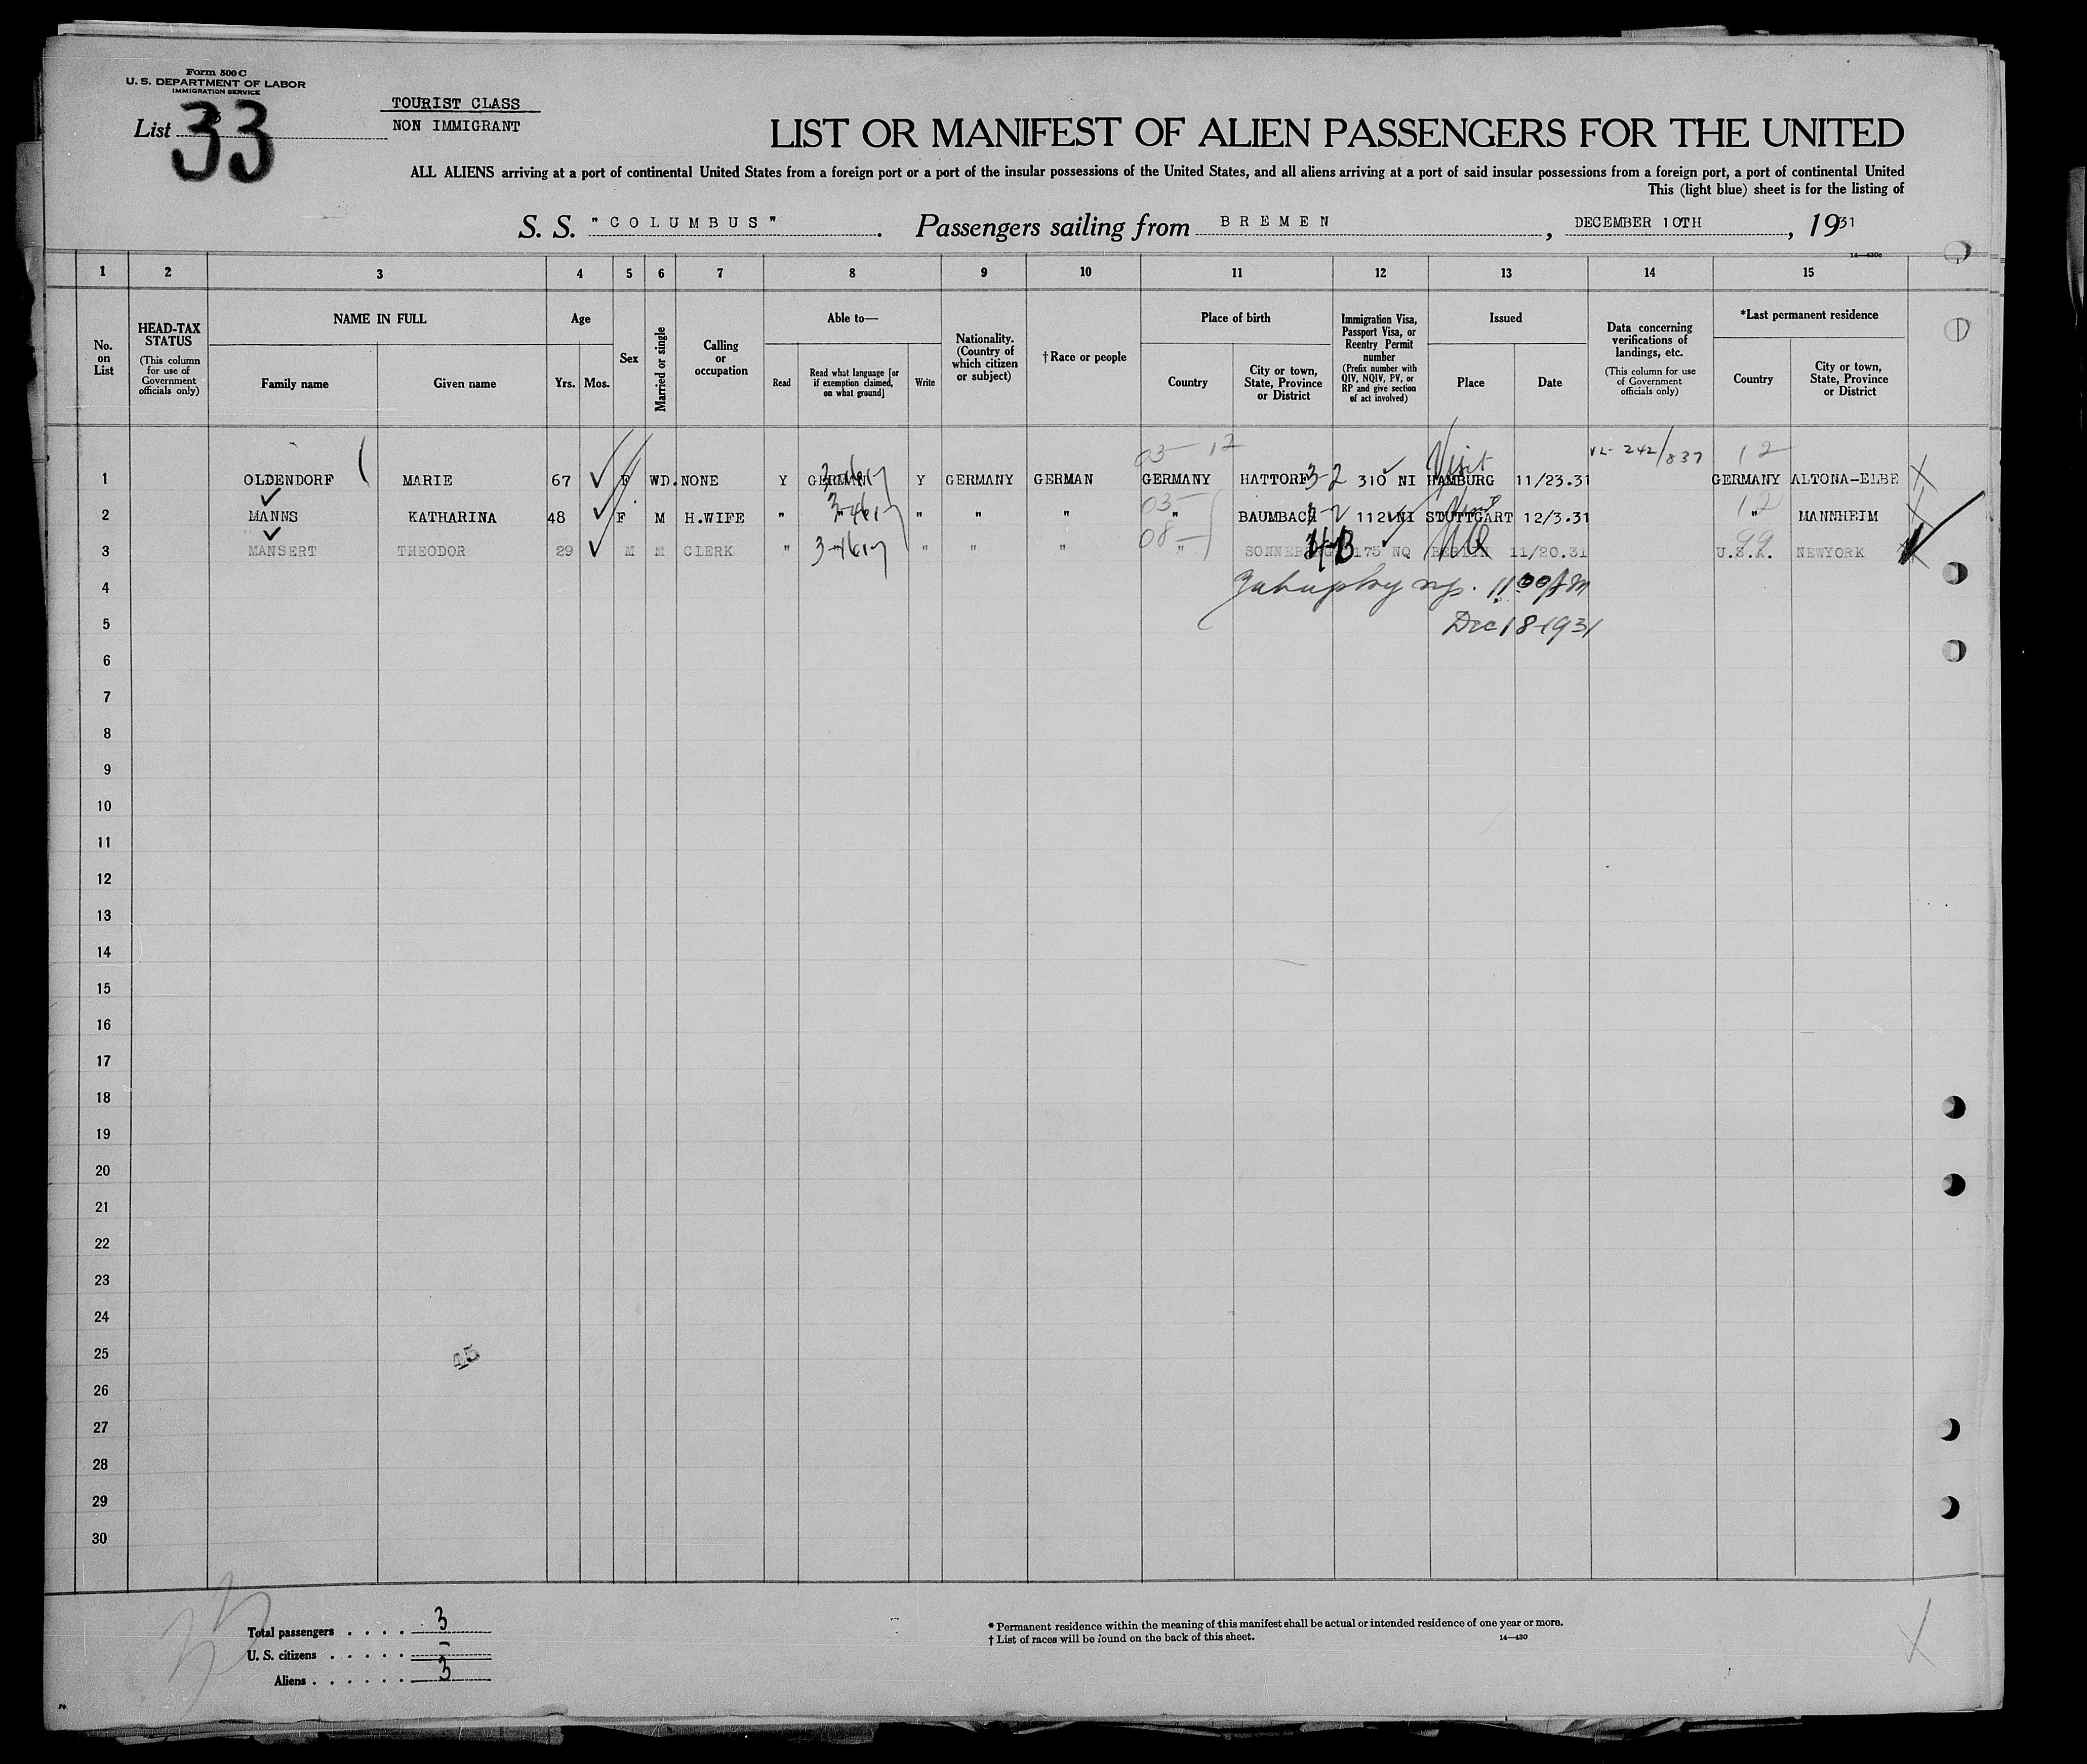 Form 500 C
U. S. DEPARTMENT OF LABOR
IMMIGRATION SERVICE
List 33
TOURIST CLASS
NON IMMIGRANT
LIST OR MANIFEST OF ALIEN PASSENGERS FOR THE UNITED
ALL ALIENS arriving at a port of continental United States from a foreign port or a port of the insular possessions of the United States, and all aliens arriving at a port of said insular possessions from a foreign port, a port of continental United
This (light blue) sheet is for the listing of
S. S. "COLUMBUS". Passengers sailing from BREMEN, DECEMBER 10TH, 1931
1 2 3 4 5 6 7 8 9 10 11 12 13 14 15
No. on List
HEAD-TAX STATUS (This column for use of Government officials only)
NAME IN FULL Family name Given name
Age Yrs. Mos.
Sex
Married or single
Calling or occupation
Able to— Read Read what language [or if exemption claimed, on what ground] Write
Nationality. (Country of which citizen or subject)
† Race or people
Place of birth Country City or town, State, Province or District
Immigration Visa, Passport Visa, or Reentry Permit number (Prefix number with QIV, NQIV, PV, or RP and give section of act involved)
Issued Place Date
Data concerning verifications of landings, etc. (This column for use of Government officials only)
*Last permanent residence Country City or town, State, Province or District
03— 12 Visit 242/837 12
1 OLDENDORF MARIE 67 F WD. NONE Y GERMAN Y GERMANY GERMAN GERMANY HATTORF 3-2 310 NI HAMBURG 11/23.31 GERMANY ALTONA-ELBE X
03— 12
2 MANNS KATHARINA 48 F M H.WIFE " " " " " " BAUMBACH 3-2 112 NI STUTTGART 12/3.31 " MANNHEIM X
08— 99
3 MANSERT THEODOR 29 M M CLERK " " " " " SONNEBERG 175 NQ BERLIN 11/20.31 U.S.A. NEWYORK
4 11 00 AM
5 Dec 18-1931
6
7
8
9
10
11
12
13
14
15
16
17
18
19
20
21
22
23
24
25
45
26
27
28
29
30
Total passengers . . . . 3
U. S. citizens . . . . . –
Aliens . . . . . . 3
* Permanent residence within the meaning of this manifest shall be actual or intended residence of one year or more.
† List of races will be found on the back of this sheet. 14—430